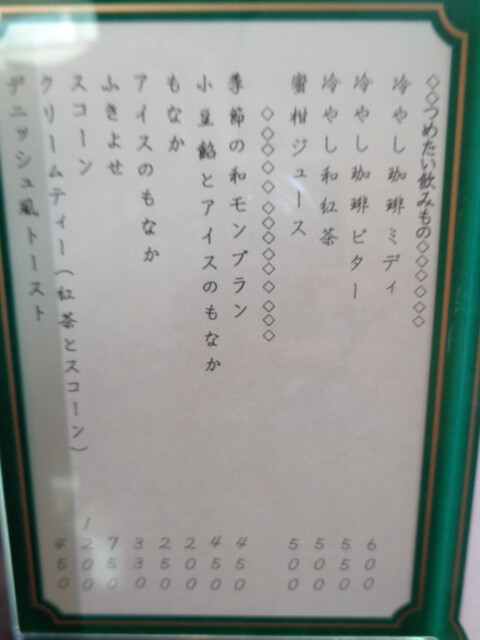 ◇◇つめたい飲みもの◇◇◇◇◇◇
冷やし珈琲ミディ 600
冷やし珈琲ビター 550
冷やし和紅茶 500
蜜柑ジュース 500
◇◇◇◇◇◇◇◇◇◇◇◇◇◇
季節の和モンブラン 450
小豆餡とアイスのもなか 450
もなか 200
アイスのもなか 250
ふきよせ 330
スコーン 750
クリームティー(紅茶とスコーン) 1200
デニッシュ風トースト 450